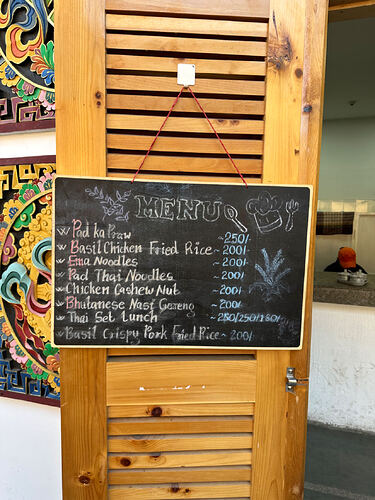 MENU
Pad ka Praw ~ 250/-
Basil Chicken Fried Rice ~ 200/-
Ema Noodles ~ 200/-
Pad Thai Noodles ~ 200/-
Chicken Cashew Nut ~ 200/-
Bhutanese Nasi Goreng ~ 200/-
Thai Set Lunch ~ 250/250/180/-
Basil Crispy Pork Fried Rice ~ 200/-